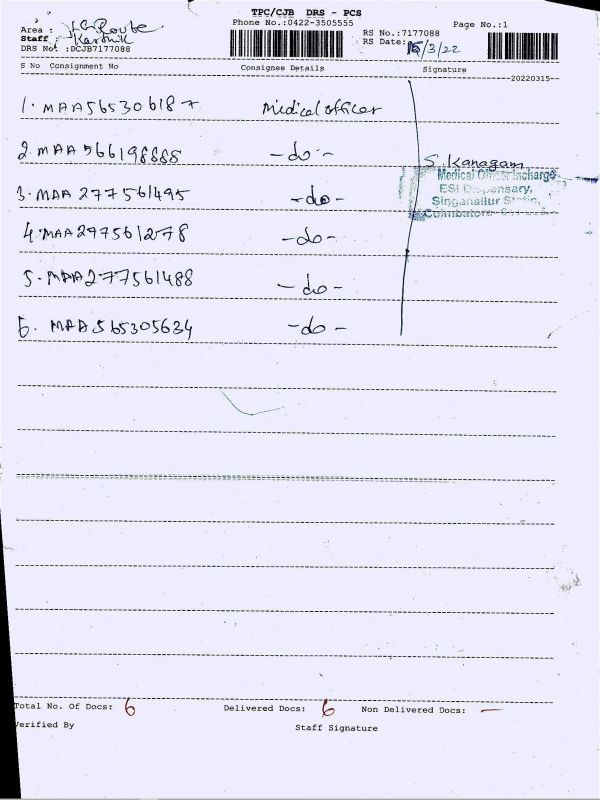 TPC/CJB DRS - PCS
Area :
Phone No.:0422-3505555
Page No.:1
Staff : Karthik
RS No.:7177088
DRS No! :DCJB7177088
RS Date: 15/3/22
S No Consignment No Consignee Details Signature
20220315
1. MAA565306187 Medical officer
2. MAA566198888 -do-
S. Kanagam
Medical Officer Incharge
ESI Dispensary,
Singanallur
Coimbatore
3. MAA277561495 -do-
4. MAA277561278 -do-
5. MAA277561488 -do-
6. MAA565305634 -do-
Total No. Of Docs: 6 Delivered Docs: 6 Non Delivered Docs: —
Verified By Staff Signature